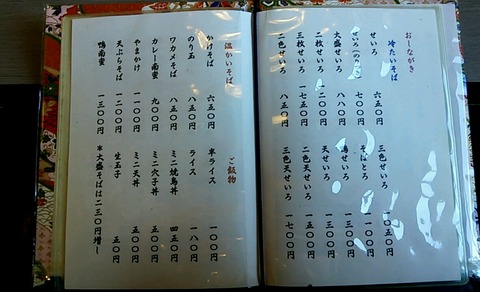 おしながき
冷たいそば
せいろ 六五〇円
せいろ(のり) 七〇〇円
大盛せいろ 八五〇円
二枚せいろ 一二〇〇円
三枚せいろ 一八〇〇円
二色せいろ 八五〇円
三色せいろ 一〇五〇円
そばとろ 一一〇〇円
鴨せいろ 一三〇〇円
天せいろ 一三〇〇円
二色天せいろ 一五〇〇円
三色天せいろ 一七〇〇円
温かいそば
かけそば 六五〇円
のり玉 八五〇円
ワカメそば 八五〇円
カレー南蛮 九〇〇円
やまかけ 一一〇〇円
天ぷらそば 一二〇〇円
鴨南蛮 一三〇〇円
ご飯物
半ライス 一〇〇円
ライス 一八〇円
ミニ焼鳥丼 四五〇円
ミニ穴子丼 五〇〇円
ミニ天丼 五〇〇円
生玉子 五〇円
*大盛そばは二三〇円増し